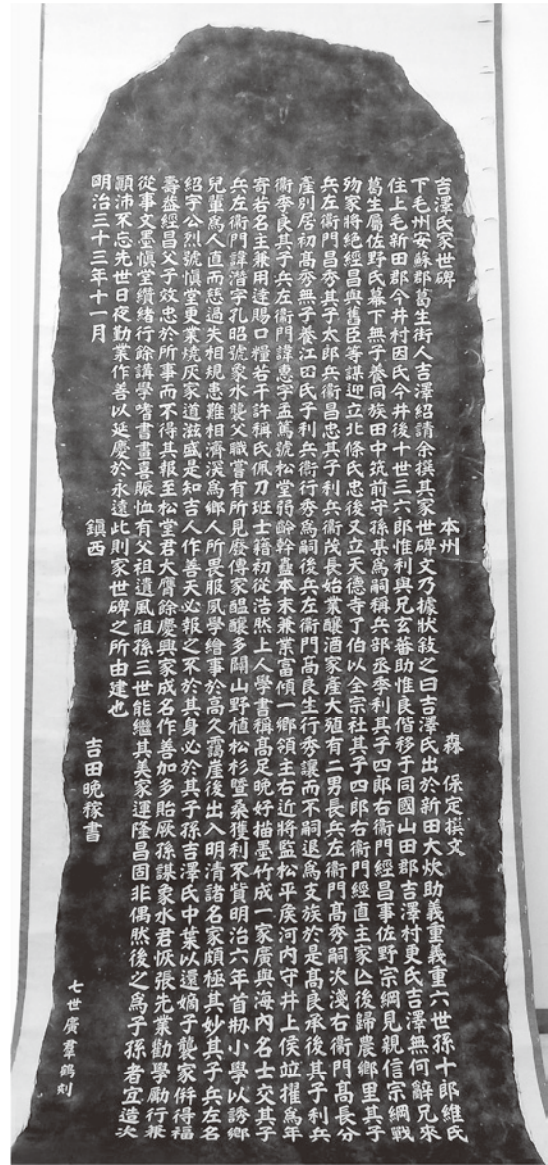 吉澤氏家世碑 本州 森 保定撰文
下毛州安蘇郡葛生街人吉澤紹請余撰其家世碑文乃據狀敍之曰吉澤氏出於新田大炊助義重義重六世孫十郎維氏
住上毛新田郡今井村因氏今井後十世三六郎惟利與兄玄蕃助惟良偕移于同國山田郡吉澤村更氏吉澤無何辭兄來
葛生屬佐野氏幕下無子養同族田中筑前守孫某爲嗣稱兵部丞季利其子四郎右衞門經昌事佐野宗綱見親信宗綱戰
歿家將絶經昌與舊臣等謀迎立北條氏忠後又立天德寺了伯以全宗社其子四郎右衞門經直主家亾後歸農鄉里其子
兵左衞門昌秀其子太郎兵衞昌忠其子利兵衞茂長始業釀酒家產大殖有二男長兵左衞門髙秀嗣次淺右衞門髙長分
產別居初髙秀無子養江田氏子利兵衞行秀爲嗣後兵左衞門髙良生行秀讓而不嗣退爲支族於是髙良承後其子利兵
衞季良其子兵左衞門諱惠字孟篤號松堂弱齡幹蠱本末兼業富傾一鄉領主右近將監松平矦河内守井上侯竝擢爲年
寄若名主兼用達賜口糧若干許稱氏佩刀班士籍初從浩然上人學書稱髙足晩好描墨竹成一家廣與海内名士交其子
兵左衞門諱潛字孔昭號象水襲父職嘗有所見廢傳家醞釀多闢山野植松杉暨桑獲利不貲明治六年首刱小學以誘鄉
兒輩爲人直而慈過失相規患難相濟深爲鄉人所畏服夙學繪事於高久靄崖後出入明清諸名家頗極其妙其子兵左名
紹字公烈號愼堂更業燒灰家道滋盛是知吉人作善天必報之不於其身必於其子孫吉澤氏中葉以還嫡子襲家倂得福
壽益經昌父子效忠於所事而不得其報至松堂君大膺餘慶興家成名作善加多貽厥孫謀象水君恢張先業勸學勵行兼
從事文墨愼堂纘緒行餘講學嗜書畫喜賑恤有父祖遺風祖孫三世能繼其美家運隆昌固非偶然後之爲子孫者宜造次
顚沛不忘先世日夜勤業作善以延慶於永遠此則家世碑之所由建也
明治三十三年十一月 鎭西 吉田晩稼書 七世廣羣鶴刻